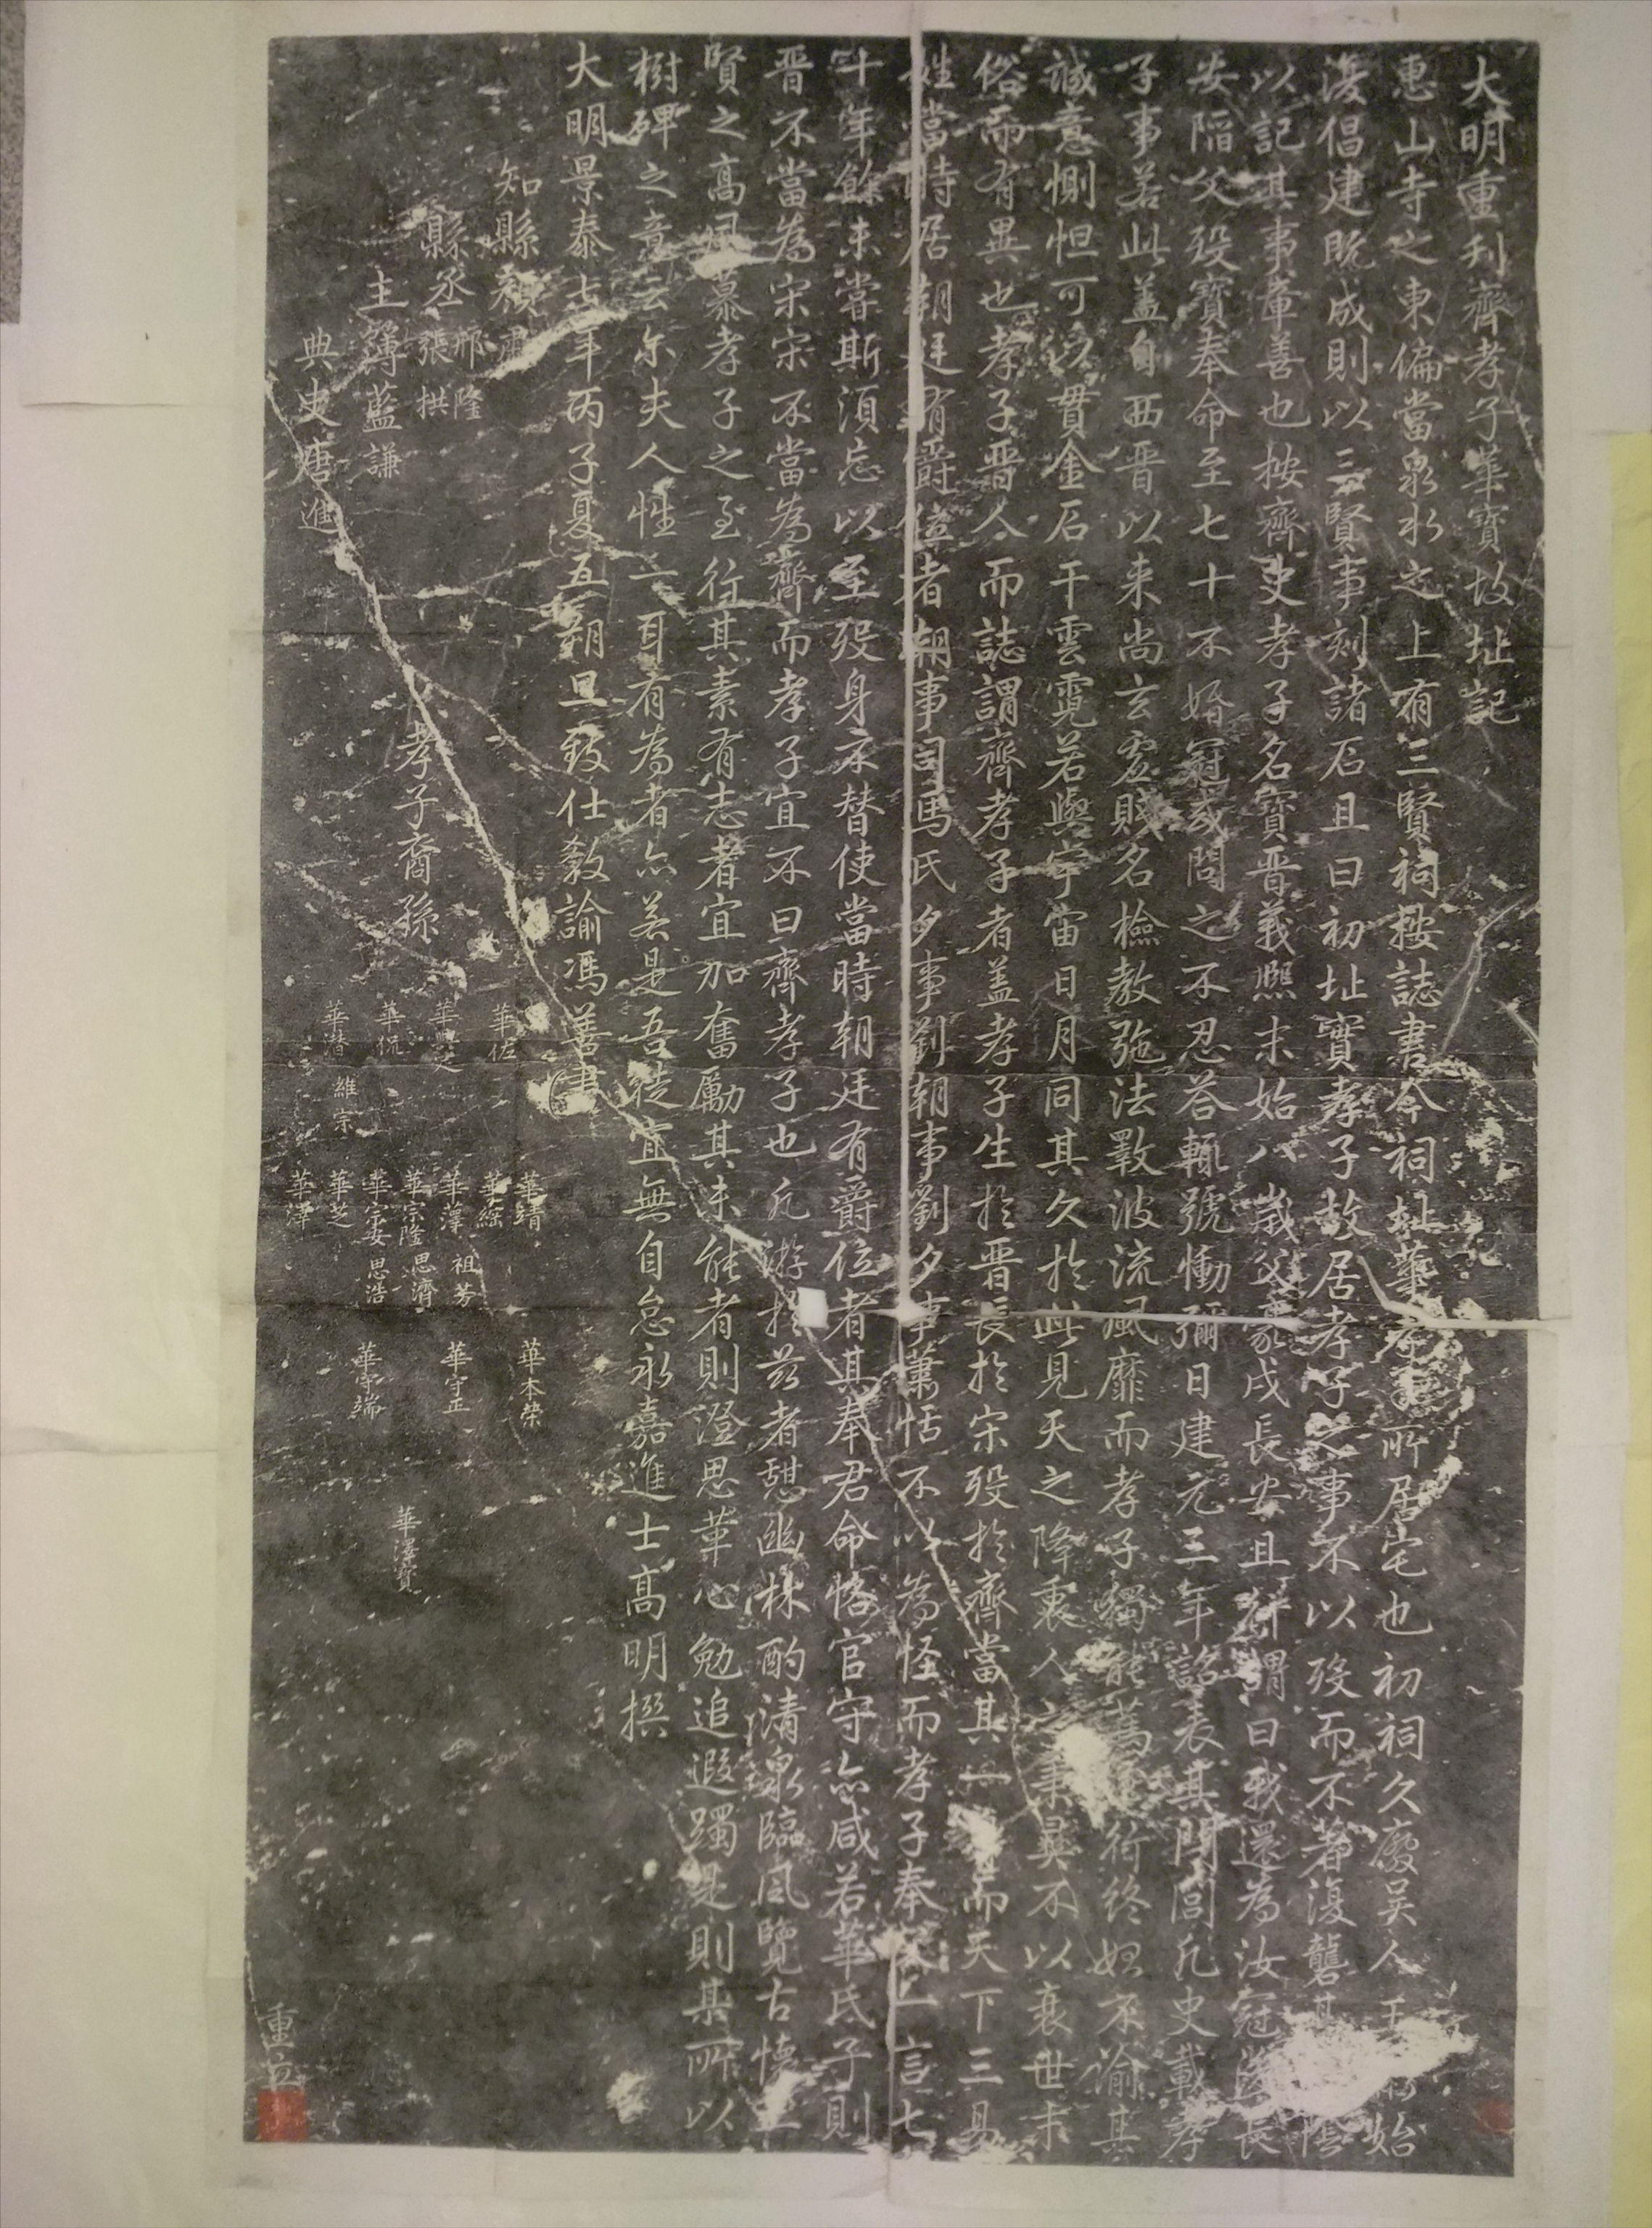 大明重刋齊孝子華寶故址記
惠山寺之東偏當泉水之上有三賢祠按誌書今祠址華孝子所居宅也初祠久廢吴人王 始
復倡建既成則以三賢事刻諸石且曰初址實孝子故居孝子之事不以殁而不著復礱其陰
以記其事章善也按齊史孝子名寶晋義熈末始八歳父豪戍長安且行謂曰我還為汝冠 長
安陷父殁寶奉命至七十不婚冠或問之不忍荅輒號慟彌日建元三年詔表其門閭凢史載孝
子事若此盖自西晋以来尚玄虚賤名檢教弛法斁波流風靡而孝子獨能篤 行終始不渝其
誠意惻怛可以貫金石干雲霓若與宇宙日月同其久扵此見天之降衷人之秉彛不以衰世末
俗而有異也孝子晋人而誌謂齊孝子者盖孝子生扵晋長扵宋殁扵齊當其一 而天下三易
姓當時居朝廷有爵位者朝事司馬氏夕事劉朝事劉夕事蕭恬不以為怪而孝子奉父一言七
十年餘未甞斯湏忘以至殁身不替使當時朝廷有爵位者其奉君命恪官守亦咸若華氏子則
晋不當為宋宋不當為齊而孝子宜不曰齊孝子也凢游扵兹者憇幽林酌清泉臨風覽古懐三
賢之髙風慕孝子之至行其素有志者宜加奮勵其未能者則澄思革心勉追遐躅是則某所以
樹碑之意云尔夫人性一耳有為者亦若是吾徒宜無自怠永嘉進士髙明撰
大明景泰七年丙子夏五朔旦致仕教諭馮善書
知縣 肅
縣丞 邢隆 張拱
主簿藍謙
典史唐進
孝子裔孫
華佐
華 文
華侃
華潜 維宗
華靖
華綜
華澤 祖芳
華宗隆 思濟
華宗安 思浩
華芝
華澤
華本榮
華守正
華守端
華澤寳
重立